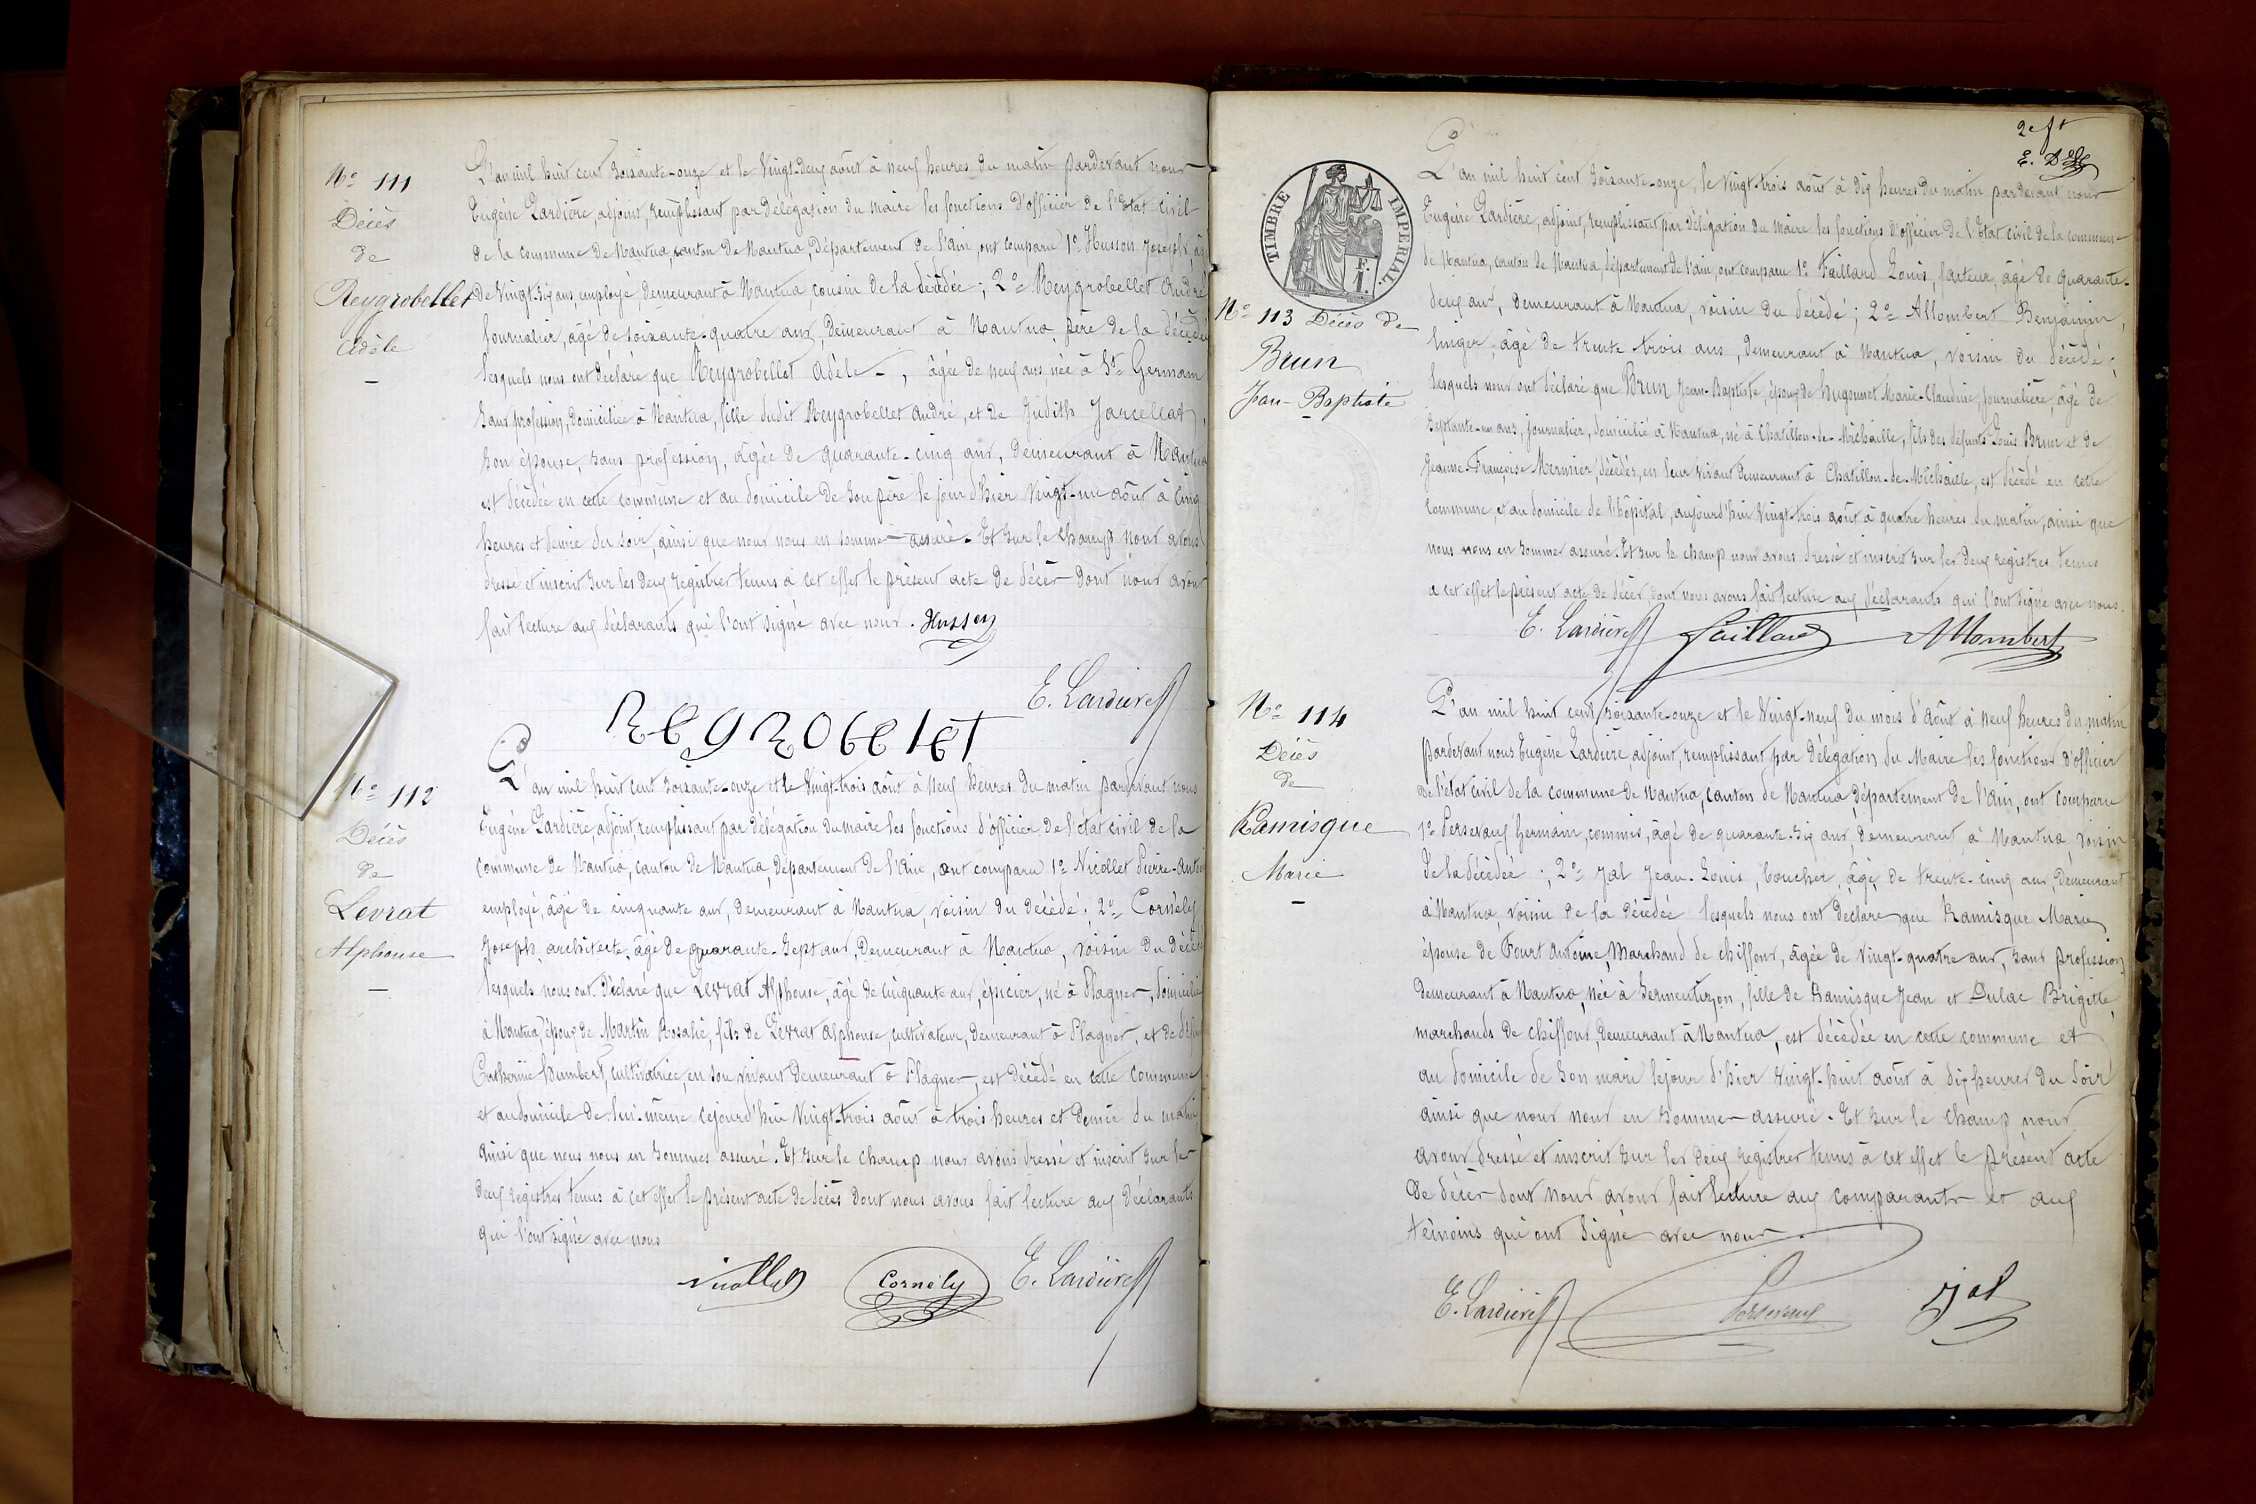 No 111
Décès
de
Reygrobellet
Adèle
L'an mil huit cent soixante-onze et le vingt-deux août à neuf heures du matin pardevant nous
Eugène Lardière, adjoint, remplissant par délégation du maire les fonctions d'officier de l'Etat civil
de la commune de Nantua, canton de Nantua, Département de l'ain, ont comparu 1o Husson Joseph, âgé
de vingt-six ans, employé, demeurant à Nantua, cousin de la décédée; 2o Reygrobellet André
journalier, âgé de soixante-quatre ans, demeurant à Nantua père de la décédée
lesquels nous ont déclaré que Reygrobellet Adèle, âgée de neuf ans, née à St Germain
sans profession, domiciliée à Nantua, fille dudit Reygrobellet André, et de Judith Jarcellat,
son épouse, sans profession, âgée de quarante-cinq ans, demeurant à Nantua
est décédée en cette commune et au domicile de son père le jour d'hier vingt-un août à cinq
heures et demie du soir, ainsi que nous nous en sommes assuré. Et sur le champ nous avons
dressé et inscrit sur les deux registres tenus à cet effet le présent acte de décès dont nous avons
fait lecture aux déclarants qui l'ont signé avec nous. Husson
E. Lardière
Regrobelet
No 112
Décès
de
Levrat
Alphonse
L'an mil huit cent soixante-onze et le vingt-trois août à neuf heures du matin pardevant nous
Eugène Lardière, adjoint, remplissant par délégation du maire les fonctions d'officier de l'état civil de la
commune de Nantua, canton de Nantua, département de l'Ain, ont comparu 1o Nicollet Pierre-
employé, âgé de cinquante ans, demeurant à Nantua, voisin du décédé; 2o Cornély
Joseph, architecte, âgé de quarante-sept ans, demeurant à Nantua, voisin du décédé
lesquels nous ont déclaré que Levrat Alphonse, âgé de cinquante ans, épicier, né à Plagnes, domicilié
à Nantua, époux de Martin Rosalie, fils de Levrat Alphonse, cultivateur, demeurant à Plagnes, et de
Catherine Humbert, cultivatrice, en son vivant demeurant à Plagnes, est décédé en cette commune
et au domicile de lui-même cejourd'hui vingt-trois août à trois heures et demie du matin
ainsi que nous nous en sommes assuré. Et sur le champ nous avons dressé et inscrit sur les
deux registres tenus à cet effet le présent acte de décès dont nous avons fait lecture aux déclarants
qui l'ont signé avec nous
Nicollet Cornély E. Lardière
2e ft
TIMBRE IMPERIAL.
No 113 Décès de
Brun
Jean-Baptiste
L'an mil huit cent soixante-onze, le vingt-trois août à dix heures du matin pardevant nous
Eugène Lardière, adjoint, remplissant par délégation du maire les fonctions d'officier de l'Etat civil de la commune
de Nantua, canton de Nantua, département de l'ain, ont comparu 1o Faillard Louis, facteur, âgé de quarante-
deux ans, demeurant à Nantua, voisin du décédé; 2o Allombert Benjamin,
linger, âgé de trente trois ans, demeurant à Nantua, voisin du décédé;
lesquels nous ont déclaré que Brun Jean-Baptiste, époux de Hugonnet Marie-Claudine, journalière, âgé de
septante-un ans, journalier, domicilié à Nantua, né à Chatillon-de-Michaille, fils des défunts Louis Brun et de
Jeanne-Françoise Mermier, décédés, en leur vivant demeurant à Chatillon-de-Michaille, est décédé en cette
commune, et au domicile de l'hôpital, aujourd'hui vingt-trois août à quatre heures du matin, ainsi que
nous nous en sommes assuré. Et sur le champ nous avons dressé et inscrit sur les deux registres tenus
a cet effet le présent acte de décès, dont nous avons fait lecture aux déclarants qui l'ont signé avec nous.
E. Lardière Faillard Allombert
No 114
Décès
de
Ramisque
Marie
L'an mil huit cent soixante-onze et le vingt-neuf du mois d'août à neuf heures du matin
pardevant nous Eugène Lardière, adjoint, remplissant par délégation du Maire les fonctions d'officier
de l'état civil de la commune de Nantua, canton de Nantua département de l'Ain, ont comparu
1o Persevaux Germain, commis, âgé de quarante-six ans, demeurant à Nantua, voisin
de la décédée; 2o Jal Jean-Louis, boucher, âgé de trente-cinq ans, demeurant
à Nantua, voisin de la décédée lesquels nous ont déclaré que Ramisque Marie
épouse de Fourt Antoine, Marchand de chiffons, âgée de vingt-quatre ans, sans profession,
demeurant à Nantua, née à Sermentizon, fille de Ramisque Jean et Dulac Brigitte,
marchands de chiffons, demeurant à Nantua, est décédée en cette commune et
au domicile de son mari lejour d'hier vingt-huit août à dix heures du soir
ainsi que nous nous en sommes assuré. Et sur le champ nous
avons dressé et inscrit sur les deux registres tenus à cet effet le présent acte
de décès dont nous avons fait lecture aux comparants et aux
témoins qui ont signé avec nous.
E. Lardière Persevaux Jal